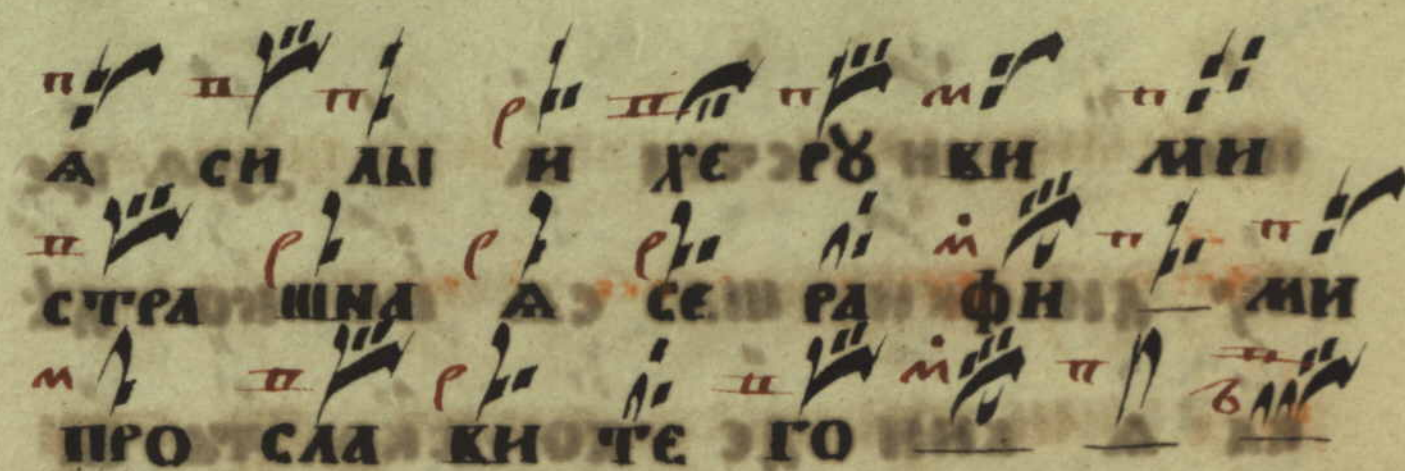 ѧ си лы и хе рꙋ ви ми
стра шна ѧ се ра фи ми
про сла ви те го